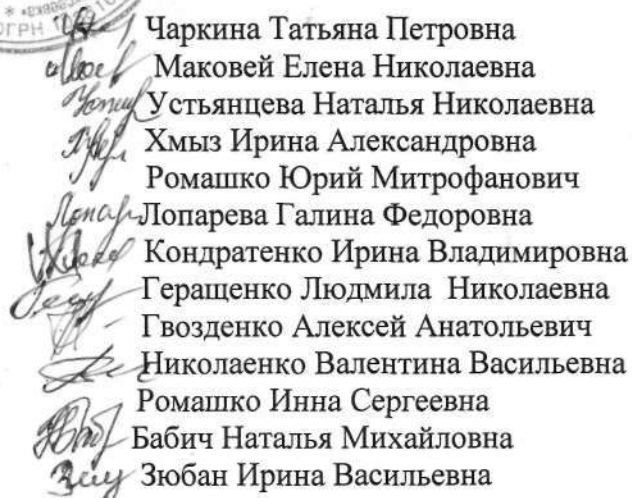 ОГРН
Чаркина Татьяна Петровна
Маковей Елена Николаевна
Устьянцева Наталья Николаевна
Хмыз Ирина Александровна
Ромашко Юрий Митрофанович
Лопарева Галина Федоровна
Кондратенко Ирина Владимировна
Геращенко Людмила Николаевна
Гвозденко Алексей Анатольевич
Николаенко Валентина Васильевна
Ромашко Инна Сергеевна
Бабич Наталья Михайловна
Зюбан Ирина Васильевна